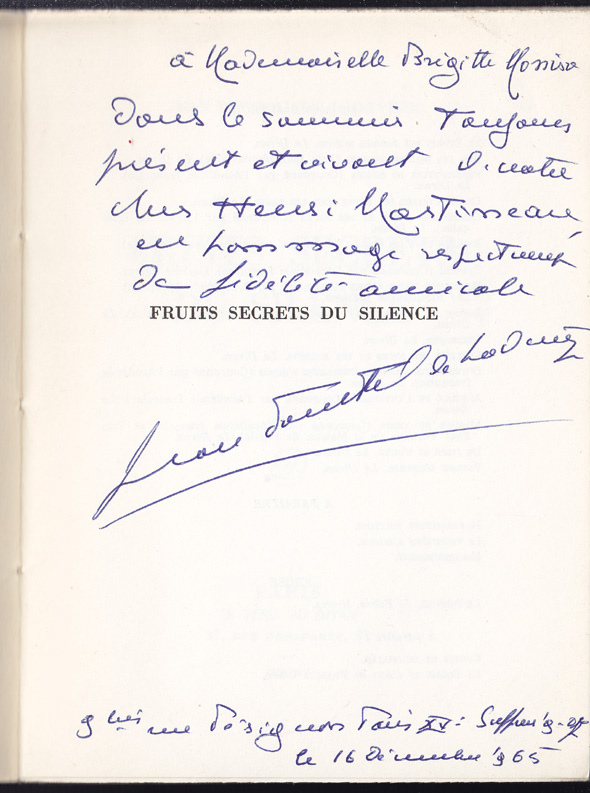 à Mademoiselle Brigitte
Dans le souvenir toujours
présent et vivant de notre
cher Henri Martineau,
en hommage respectueux
de fidélité amicale
FRUITS SECRETS DU SILENCE
Jean de
9 bis rue Pérignon Paris XV: Suffren
le 16 Décembre 1965